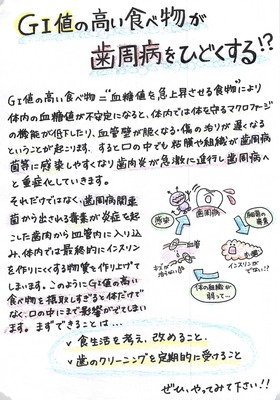 GI値の高い食べ物が
歯周病をひどくする!?
GI値の高い食べ物="血糖値を急上昇させる食物"により
体内の血糖値が不安定になると、体内では体を守るマクロファージ
の機能が低下したり、血管壁が脆くなる・傷の治りが遅くなる
ということが起こります。すると口の中でも粘膜や組織が歯周病
菌等に感染しやすくなり歯肉炎が急激に進行し歯周病へ
と重症化していきます。
それだけではなく、歯周病関連
菌から出される毒素が炎症を起
こした歯肉から血管内に入り込
み、体内では最終的にインスリン
を作りにくくする物質を作り上げて
しまいます。このようにGI値の高い
食べ物を摂取しすぎると体だけで
なく、口の中にまで影響がでてしまい
ます。まずできることは…
歯周病
感染
細菌の毒素
キズが
治らない
インスリンが
でない!?
体の組織が
弱って…
✓ 食生活を考え、改めること、
✓ 歯のクリーニングを定期的に受けること
ぜひ、やってみて下さい!!